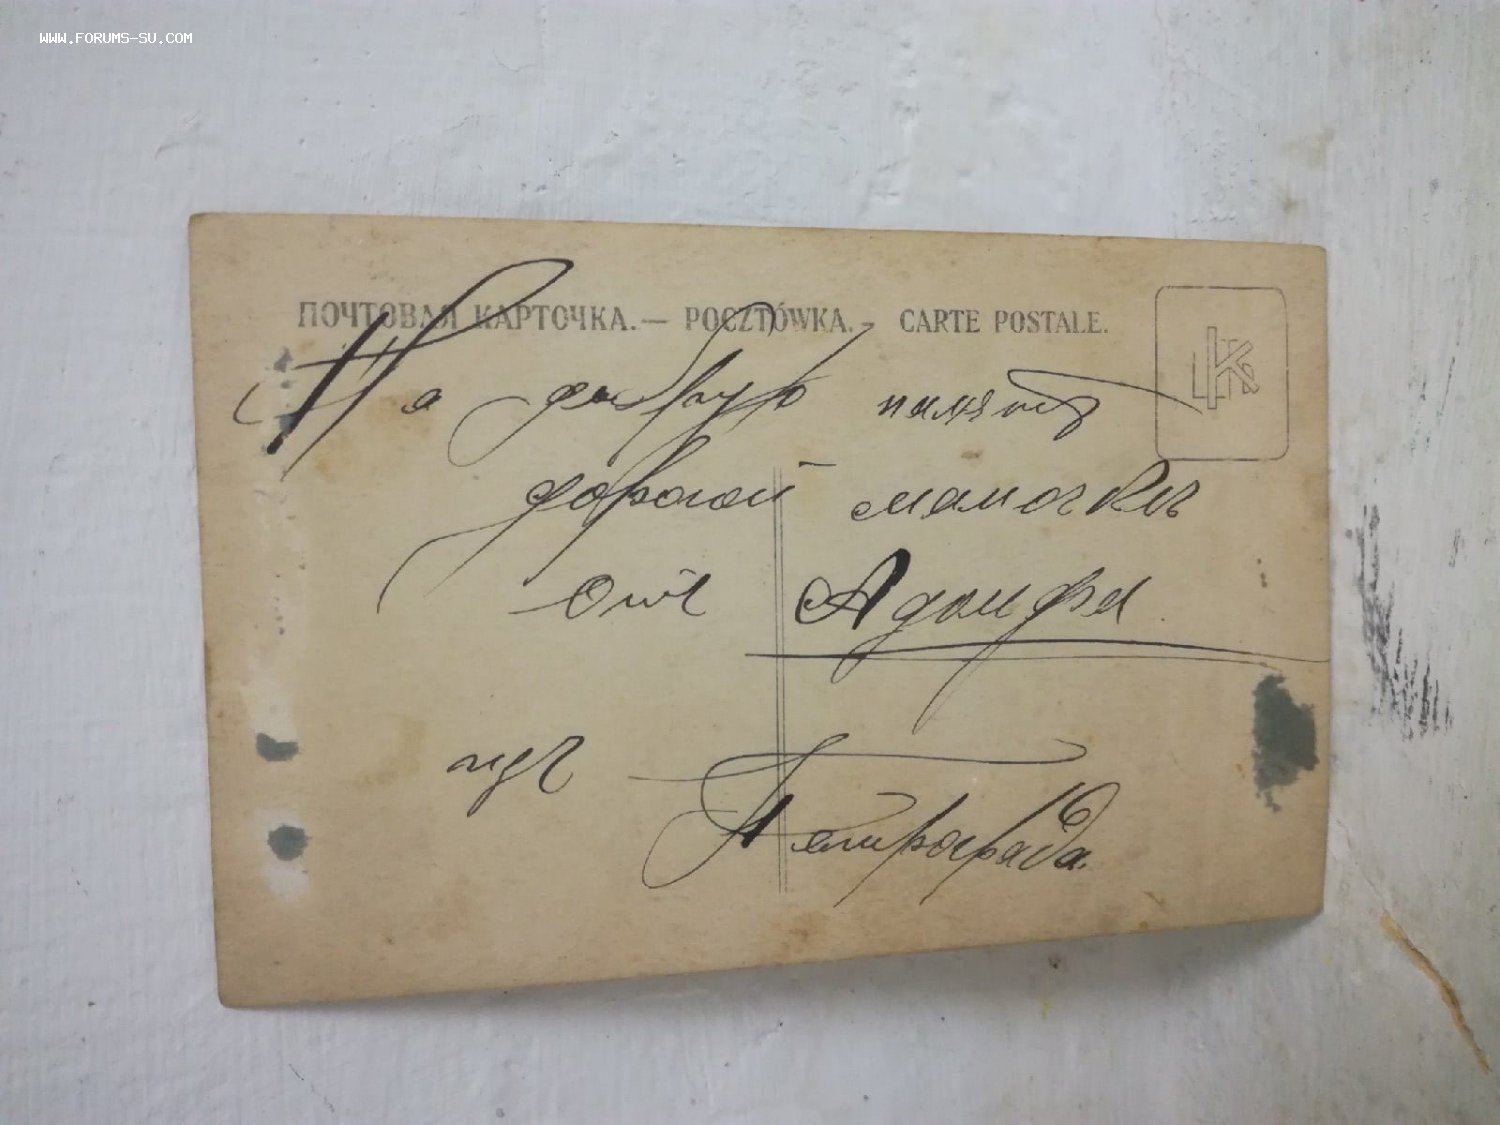 WWW.FORUMS-SU.COM
ПОЧТОВАЯ КАРТОЧКА.— POCZTÓWKA.— CARTE POSTALE.
На добрую память
дорогой мамочкѣ
отъ Адольфа
изъ Петрограда.